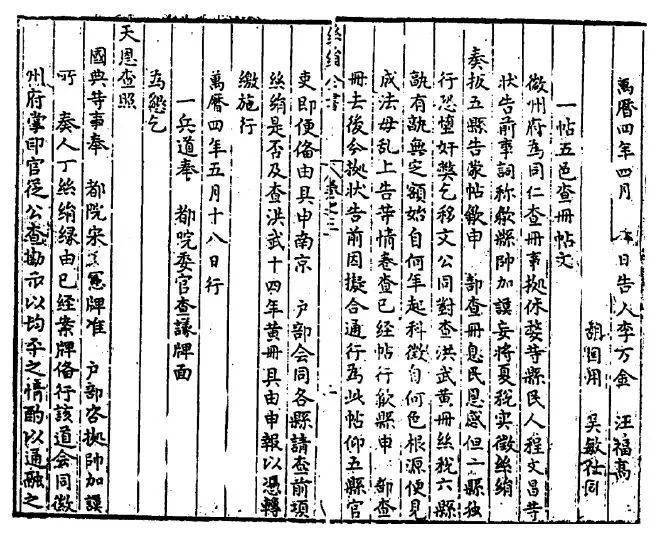 萬曆四年四月 日告人李万金 汪福高
胡国用 吴敏仕同
一帖五邑查冊帖文
徽州府為同仁查冊事拠休婺等縣民人程文昌等
状告前事詞称歙縣帥加謨妄将夏稅实徵絲絹
奏扳五縣告蒙帖歙申 部查冊息民恩感但二縣独
行恐堕奸弊乞移文公同對查洪武黄冊絲稅六縣
孰有孰無定額始自何年起科徵自何色根源便見
成法毋乱上告等情卷查已經帖行歙縣申 部查
冊去後今拠状告前因擬合通行為此帖仰五縣官
絲絹全書 卷之三
吏即便備由具申南京 户部会同各縣請查前項
絲絹是否及查洪武十四年黄冊具由申報以憑轉
繳施行
萬曆四年五月十八日行
一兵道奉 都院委官查議牌面
為懇乞
天恩查照
國典等事奉 都院宋 憲牌准 户部咨拠帥加謨
所 奏人丁絲絹緣由已經案牌俻行該道会同徽
州府掌印官從公查勘示以均平之情酌以通融之